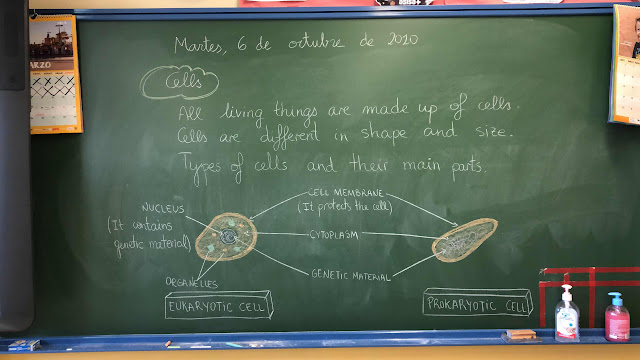 Martes, 6 de octubre de 2020
MARZO
Cells
All living things are made up of cells.
Cells are different in shape and size.
Types of cells and their main parts.
NUCLEUS
(It contains
genetic material)
CELL MEMBRANE
(It protects the cell)
CYTOPLASM
GENETIC MATERIAL
ORGANELLES
EUKARYOTIC CELL
PROKARYOTIC CELL